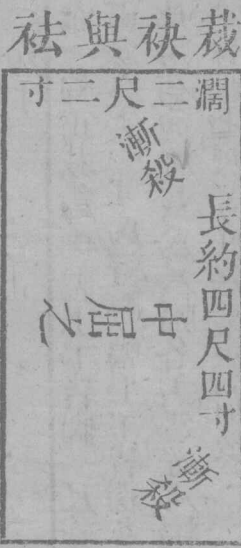 裁袂與袪
濶二尺二寸
漸殺
長約四尺四寸
中屈之
漸殺